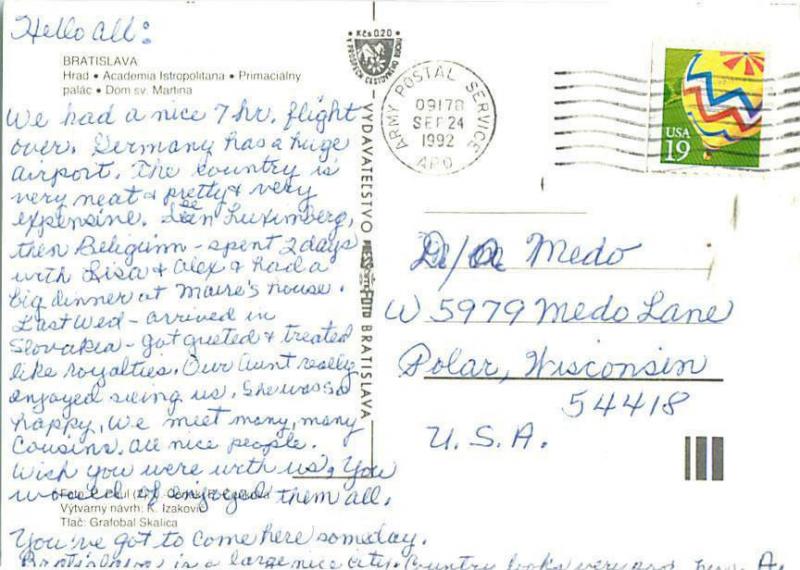 Hello all:
BRATISLAVA
Hrad • Academia Istropolitana • Primaciálny
palác • Dom sv. Martina
We had a nice 7 hr. flight
over. Germany has a huge
airport. The country is
very neat & pretty & very
expensine. Seen Luximberg,
then Beligium - spent 2 days
with Lisa & Alex & had a
big dinner at Maire's house.
Last Wed - arrived in
Slovakia - got greeted & treated
like royalties. Our Aunt really
enjoyed seeing us. She was so
happy. We meet many, many
Cousins. All nice people.
Wish you were with us. You
would of enjoyed them all.
Výtvarný návrh: K. Izakovič
Tlač: Grafobal Skalica
You've got to come here someday.
Bratislava is a large nice city. Country looks very
Kčs 0,20
VYDAVATEĽSTVO
BRATISLAVA
ARMY POSTAL SERVICE
09178
SEP 24
1992
APO
USA
19
Medo
W 5979 Medo Lane
Polar, Wisconsin
54418
U.S.A.